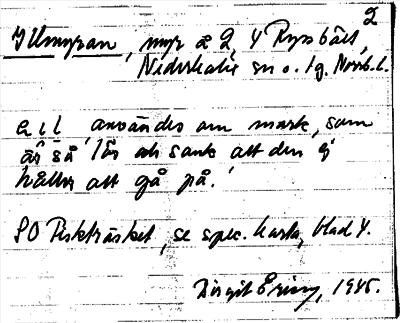 2
Illmyran, myr å 2, Y Rysbält,
Nederkalix sn o. tg. Norrb.l.
ill användes om mark, som
är så lös och sank att den ej
håller att gå på.
SO Piskträsket, se spec. karta, blad Y.
Birgit Ering, 1945.